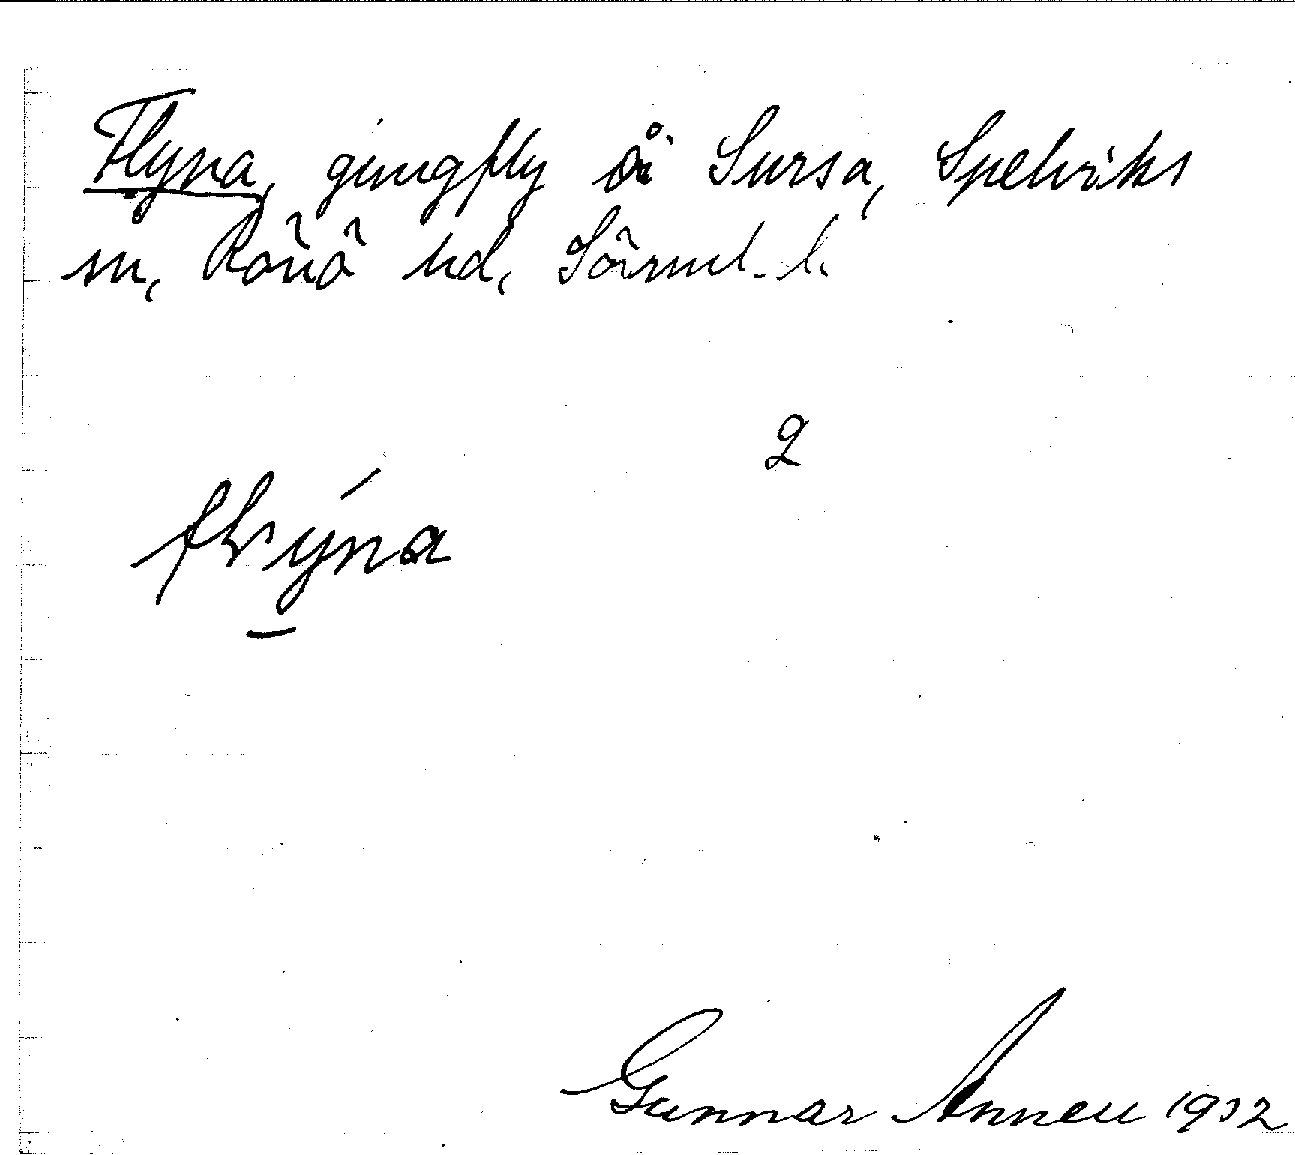 Flyna, gungfly å Sursa, Spelviks
sn, Rönö hd, Sörml. l.
2
flýna
Gunnar Annell 1932